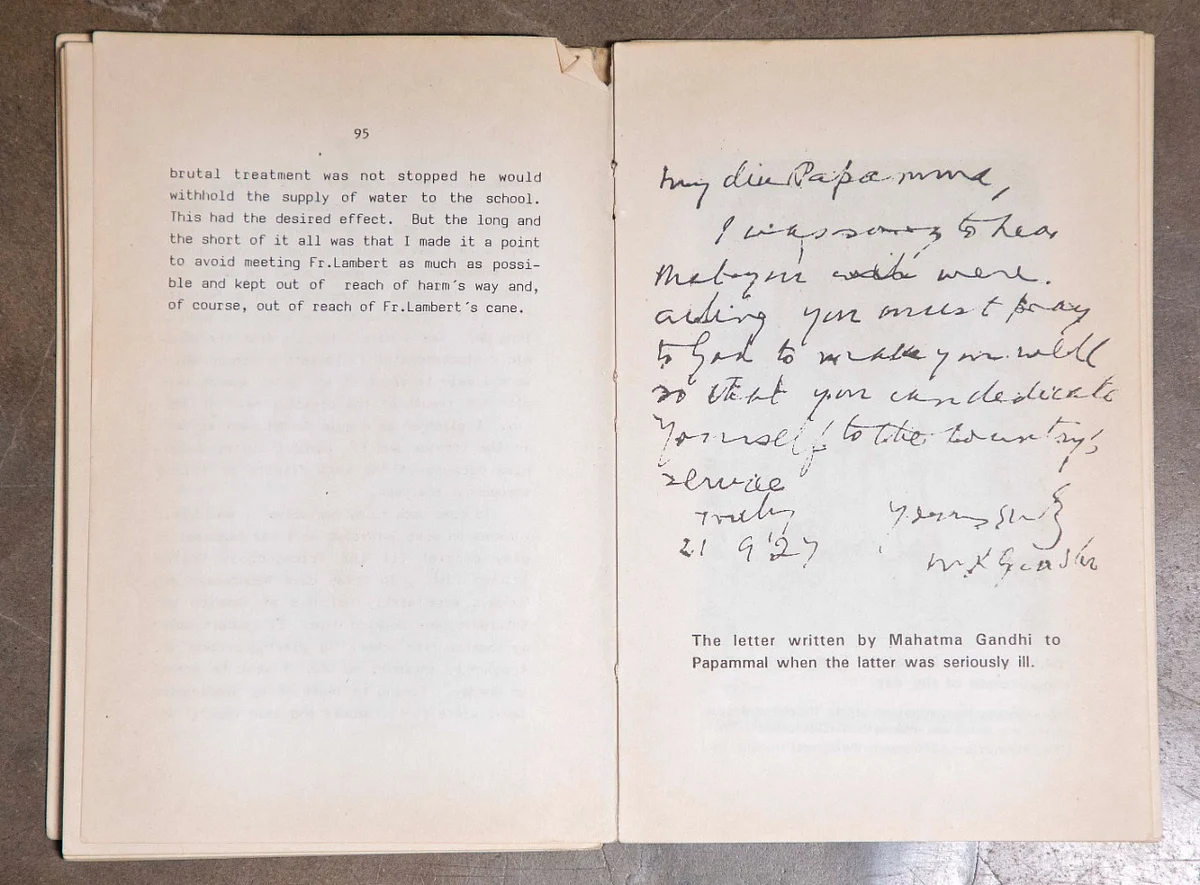 95
brutal treatment was not stopped he would
withhold the supply of water to the school.
This had the desired effect. But the long and
the short of it all was that I made it a point
to avoid meeting Fr.Lambert as much as possi-
ble and kept out of reach of harm's way and,
of course, out of reach of Fr.Lambert's cane.
My dear Papamma,
I was sorry to hear
that you were.
ailing you must pray
to God to make you well
so that you can dedicate
yourself to the country's
service
21 9 '27
Yours
MKGandhi
The letter written by Mahatma Gandhi to
Papammal when the latter was seriously ill.